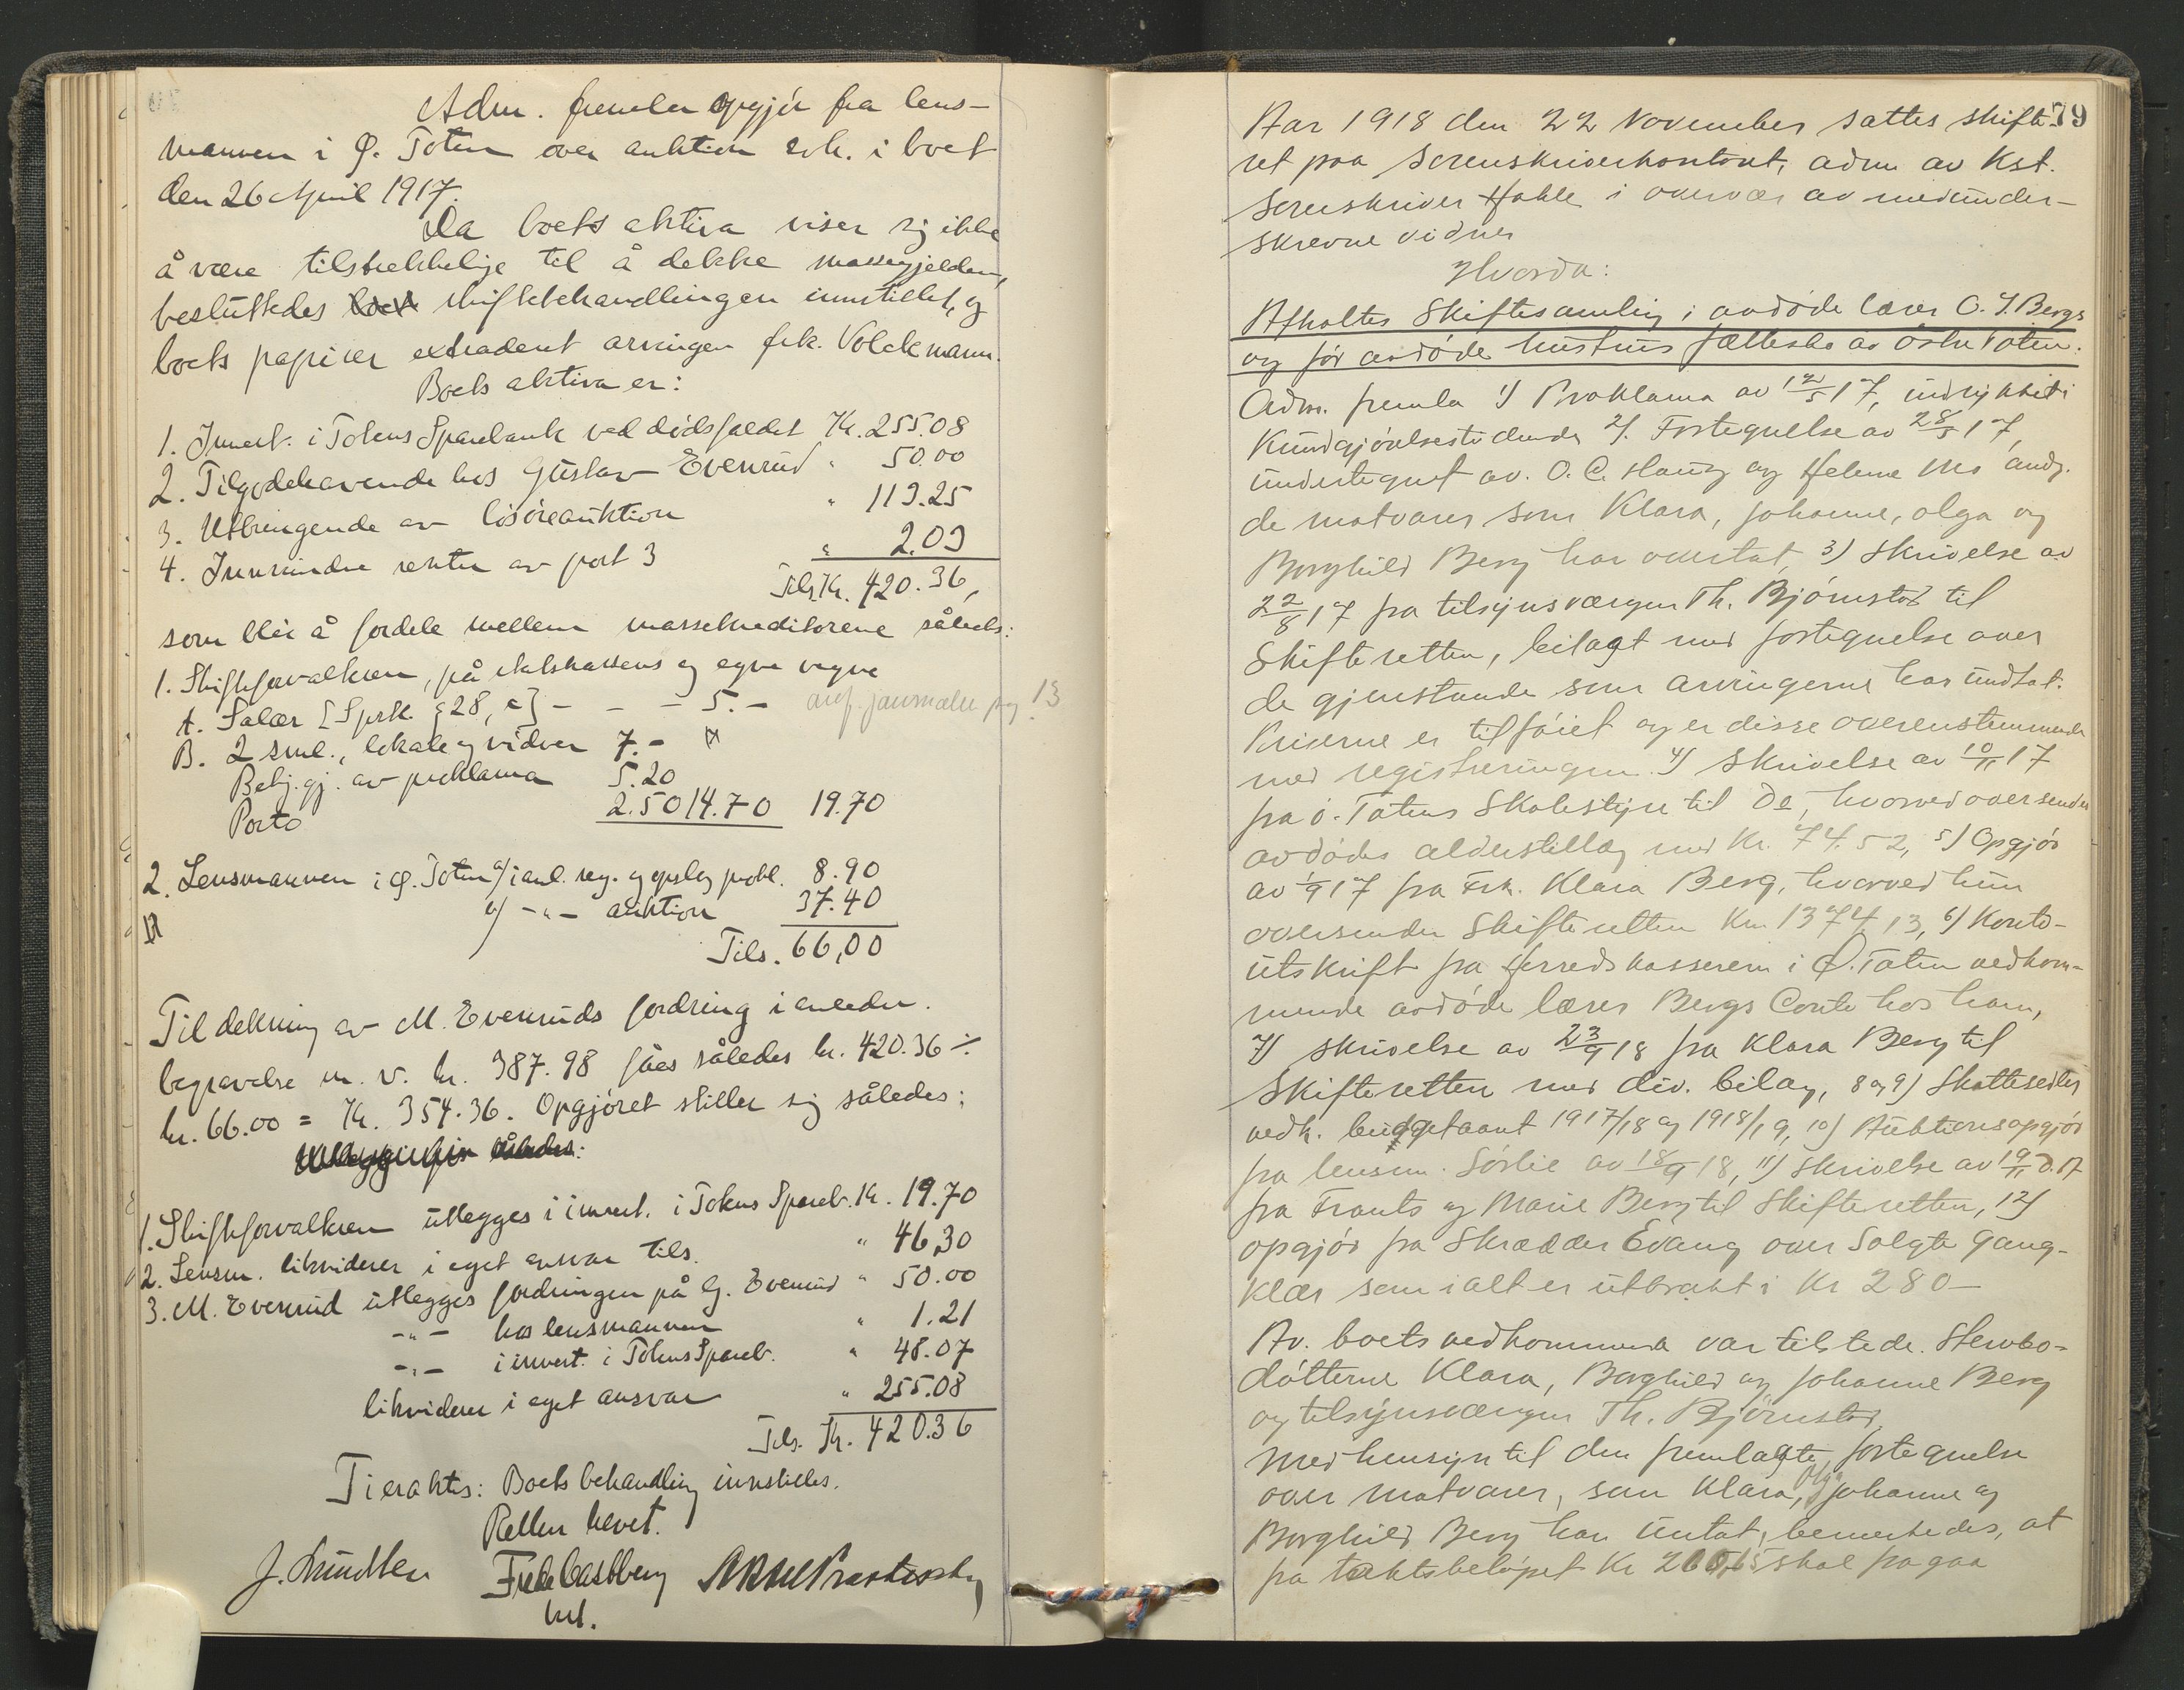 Adm. fremla opgjør fra lens-
mannen i Ø. Toten over auktion avh. i boet
den 26 April 1917.
Da boets aktiva viser sig ikke
å være tilstrekkelige til å dekke massegjelden,
besluttedes skiftebehandlingen innstillet, og
boets papirer extradert arvingen frk. Volckmann.
Boets aktiva er:
1. Innest. i Totens Sparebank ved dødsfaldet Kr. 255.08
2. Tilgodehavende hos Gustav Evenrud " 50.00
3. Utbringende av løsøreauktion " 113.25
4. Innvundne renter av post 3 " 2.03
Tils. Kr. 420.36,
som blir å fordele mellem massekreditorene således:
1. Skifteforvalteren, på statskassens og egne vegne
A. Salær [Sprk. § 28, c] - - - 5.- anf. journalen pag 13
B. 2 sml., lokale og vidner 7.-
Bekj.gj. av proklama 5.20
Porto 2.50 14.70 19.70
2. Lensmannen i Ø. Toten a/ i anl. reg. og opslag prokl. 8.90
b/ -"- auktion 37.40
Tils. 66,00
Til dekning av M. Evenruds fordring i anledn.
begravelse m. v. kr. 387.98 fåes således kr. 420.36 ÷
kr. 66.00 = Kr. 354.36. Opgjøret stiller sig således:
1. Skifteforvalteren utlegges i innest. i Totens Spareb. Kr. 19.70
2. Lensm. likviderer i eget ansvar tils. " 46,30
3. M. Evenrud utlegges fordringen på G. Evenrud " 50.00
-"- hos lensmannen " 1.21
-"- i innest. i Totens Spareb. " 48.07
likviderer i eget ansvar " 255.08
Tils. Kr. 420.36
Ti eraktes: Boets behandling innstilles.
Retten hevet.
Fredr Castberg
kst.
79
Aar 1918 den 22 November sattes skifte
ret paa Sorenskriverkontoret, adm av Kst.
Sorenskriver Hohle i overvær av medunder-
skrevne vidner
Hvorda:
Afholtes Skiftesamling i avdøde lærer O. J. Bergs
og før avdøde hustrus fællesbo av østre Toten.
Adm. fremla 1) Proklama av 12/5 17, indrykket i
Kundgjørelsestidende 2). Fortegnelse av 28/5 17,
undertegnet av. O. C. Haug og Helene Mo ang.
de matvarer som Klara, Johanne, Olga og
Borghild Berg har overtat, 3) Skrivelse av
22/8 17 fra tilsynsværgen Th. Bjørnstad til
Skifteretten, bilagt med fortegnelse over
de gjenstande som arvingerne har undtat.
Priserne er tilføiet og er disse overenstemmende
med registreringen. 4) Skrivelse av 10/11 17
fra ø. Totens Skolestyre til Do, hvorved oversendes
avdødes alderstillæg med Kr. 74.52, 5) Opgjør
av 1/9 17 fra Frk. Klara Berg, hvorved hun
oversender Skifteretten Kr. 1374,13, 6) Konto-
utskrift fra Herredskasseren i Ø. Toten vedkom-
mende avdøde lærer Bergs Conto hos ham,
7) skrivelse av 23/9 18 fra Klara Berg til
Skifteretten med div. bilag, 8 og 9) Skattesedler
vedk. budgetaaret 1917/18 og 1918/19, 10) Auktionsopgjør
fra lensm. Sørlie av 18/9 18, 11) Skrivelse av 19/11
fra Frants og Marie Berg til Skifteretten, 12)
opgjør fra Skrædder Evang over Solgte gang-
klær som ialt er utbrakt i Kr 280-
Av. boets vedkommende var tilstede. Stervbo-
døttrene Klara, Borghild og Johanne Berg
og tilsynsværgen Th. Bjørnstad,
Med hensyn til den fremlagte fortegnelse
over matvarer, som Klara, Olga Johanne og
Borghild Berg har untat, bemerkedes, at
fra takstbeløpet Kr skal fragaa